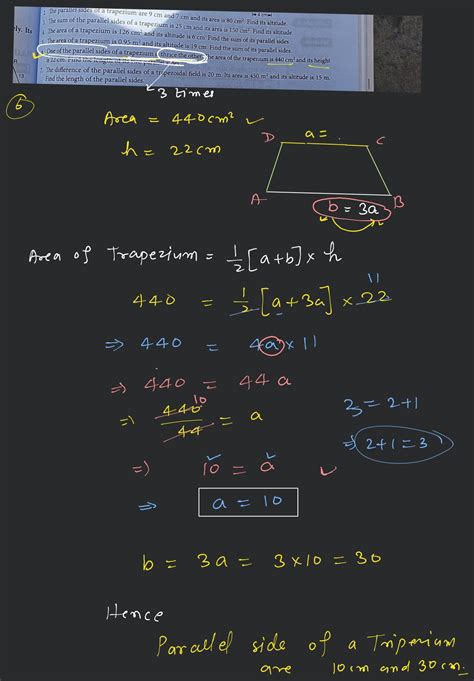 1. The parallel sides of a trapezium are 9 cm and 7 cm and its area is 80 cm². Find its altitude.
The sum of the parallel sides of a trapezium is 25 cm and its area is 150 cm². Find its altitude.
The area of a trapezium is 126 cm² and its altitude is 6 cm. Find the sum of its parallel sides.
The area of a trapezium is 0.95 m² and its altitude is 19 cm. Find the sum of its parallel sides.
One of the parallel sides of a trapezium is thrice the other. The area of the trapezium is 440 cm² and its height
is 22 cm. Find the length of the parallel sides.
7. The difference of the parallel sides of a trapezoidal field is 20 m. Its area is 450 m² and its altitude is 15 m.
Find the length of the parallel sides.
ly. Its
13
3 times
6
Area = 440cm² ✓
h = 22cm
D a = . C
A B
b = 3a
Area of Trapezium = 1/2 [a+b] × h
11
440 = 1/2 [a+3a] × 22
⇒ 440 = 4a × 11
⇒ 440 = 44 a
10
⇒ 440/44 = a
3 = 2+1
⇒ 2+1=3
⇒ 10 = a ✓
⇒ a = 10
b = 3a = 3×10 = 30
Hence
Parallel side of a Triperium
are 10cm and 30cm.